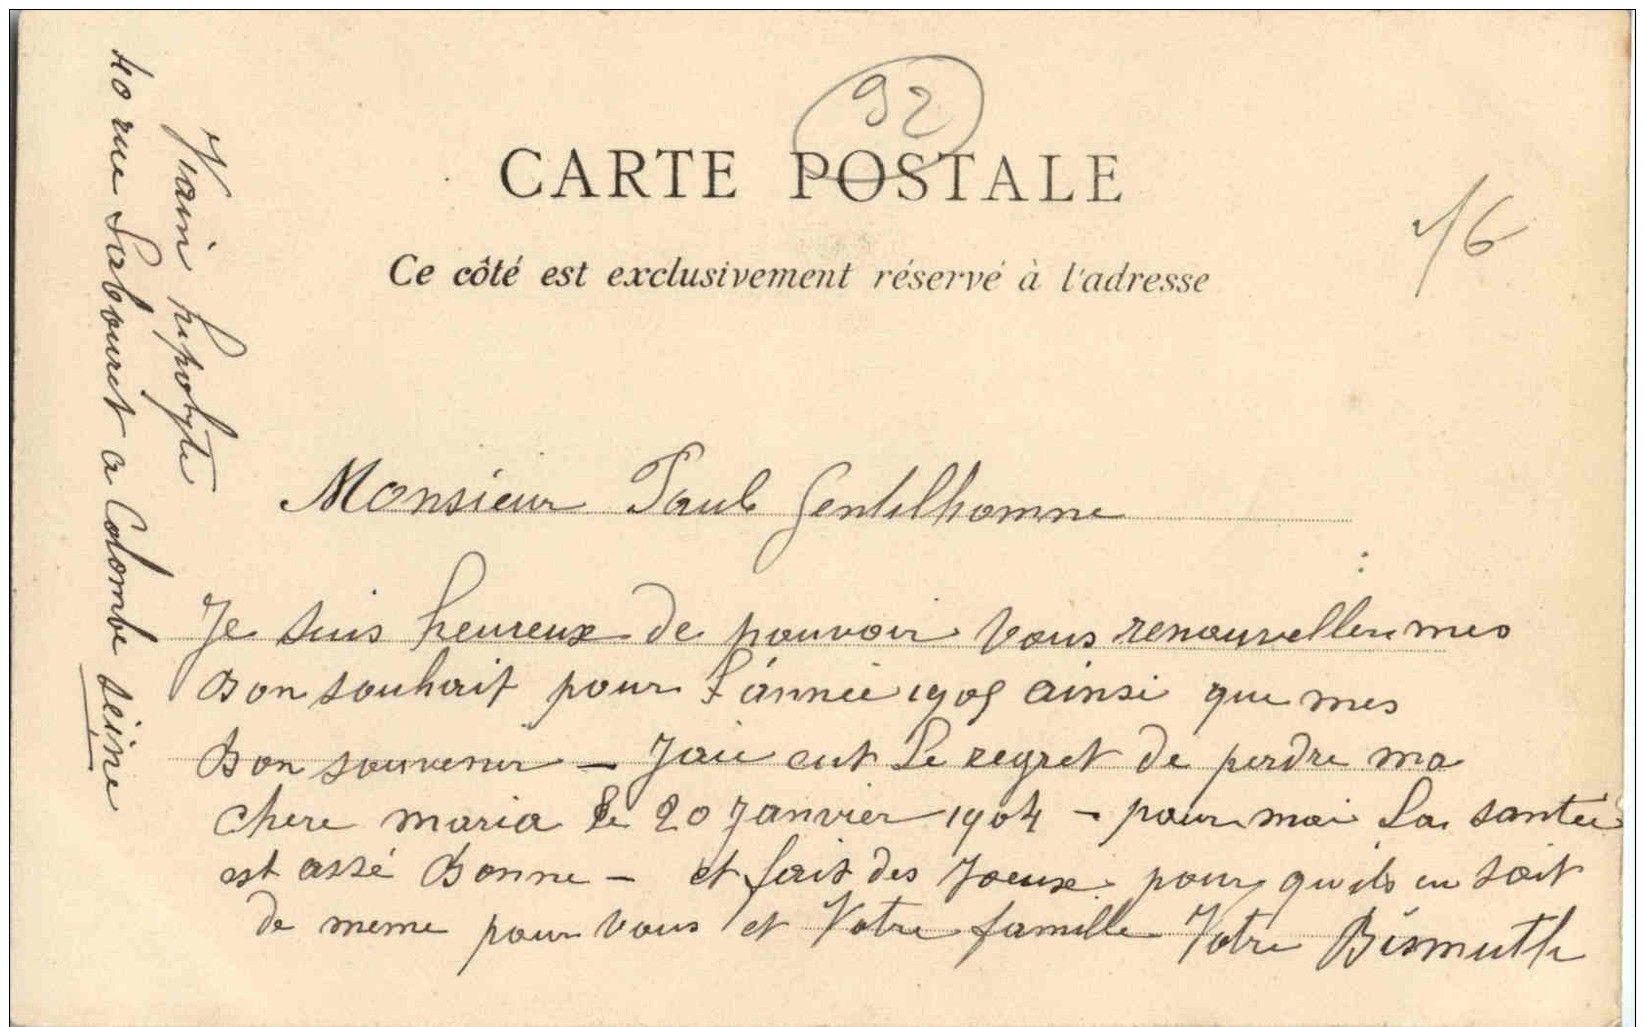 92
CARTE POSTALE
1/6
Ce côté est exclusivement réservé à l'adresse
Monsieur Paul Gentilhomme
Je suis heureux de pouvoir vous renouveller mes
Bon souhait pour l'année 1905 ainsi que mes
Bon souvenir – Jaie eut Le regret de perdre ma
chere maria Le 20 Janvier 1904 – pour moi La santée
est assé Bonne – et fait des Voeux pour quils en soit
de meme pour vous et Votre famille Votre Bismuth
hipolyte
40 rue a Colombe seine